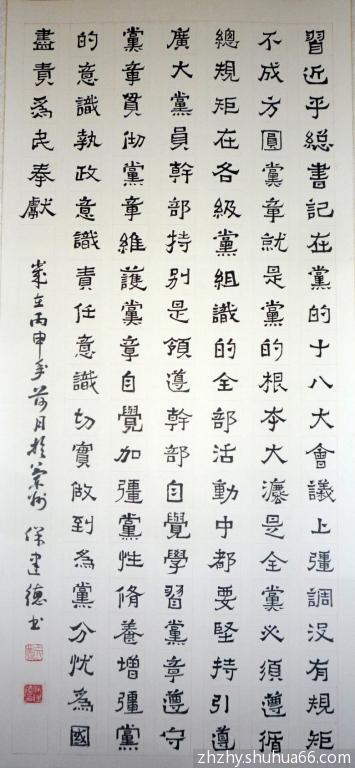 習近平總書記在黨的十八大會議上彊調没有規矩
不成方圓黨章就是黨的根本大灋是全黨必須遵循
總規矩在各級黨組識的全部活動中都要堅持引遵
廣大黨員幹部持别是領遵幹部自覺學習黨章遵守
黨章貫彻黨章維護黨章自覺加彊黨性脩養增彊黨
的意識執政意識責任意識切實做到為黨分忧為國
盡責為民奉獻
歲在丙申年荷月於蘭州保建德书
zhzhy.shuhua66.com